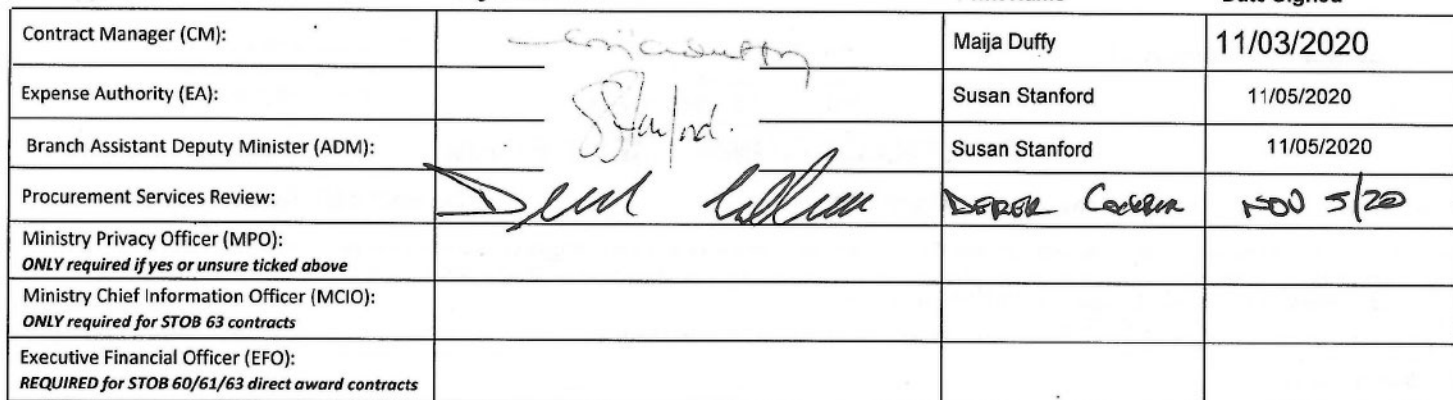 Contract Manager (CM): Maija Duffy 11/03/2020
Expense Authority (EA): SStanford. Susan Stanford 11/05/2020
Branch Assistant Deputy Minister (ADM): Susan Stanford 11/05/2020
Procurement Services Review: NOV 5/20
Ministry Privacy Officer (MPO):
ONLY required if yes or unsure ticked above
Ministry Chief Information Officer (MCIO):
ONLY required for STOB 63 contracts
Executive Financial Officer (EFO):
REQUIRED for STOB 60/61/63 direct award contracts